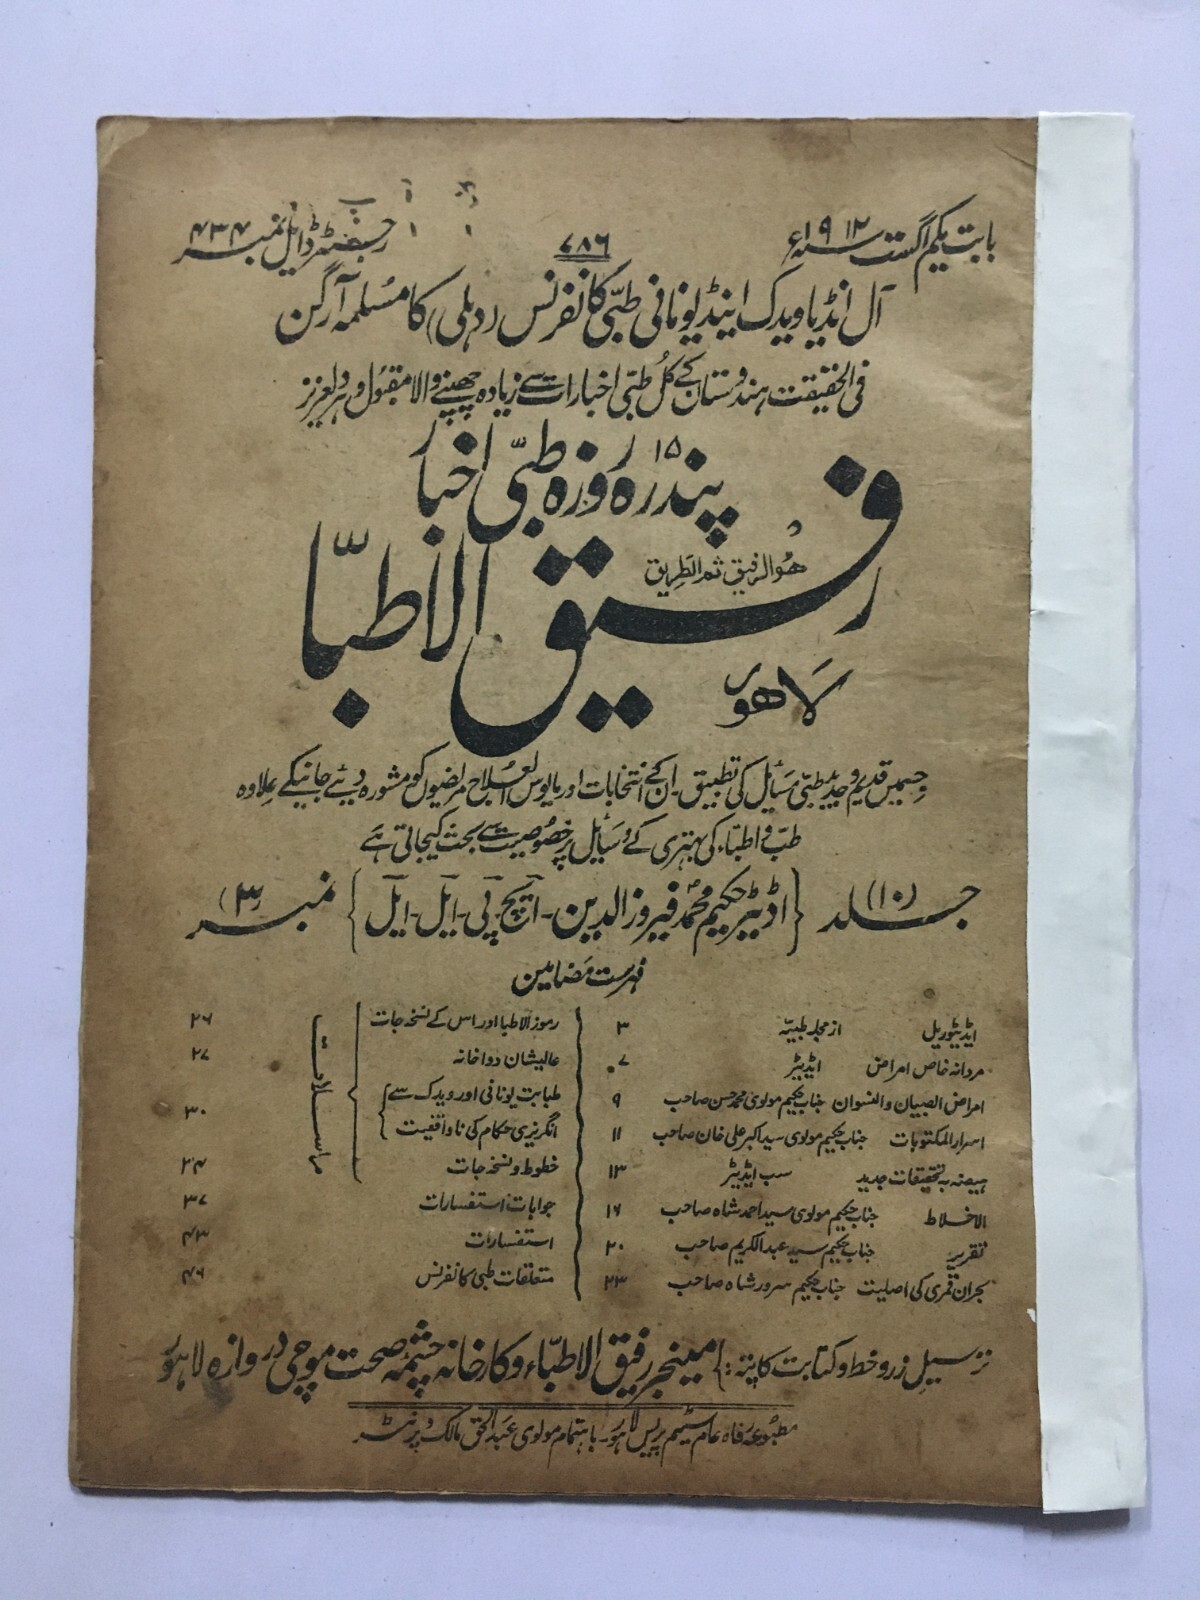 بابت یکم اگست سنہ ۱۹۱۲ء
۷۸۶
رجسٹرڈ ایل نمبر ۴۳۴
آل انڈیا ویدک اینڈ یونانی طبّی کانفرنس (دہلی) کا مسلمہ آرگن
فی الحقیقت ہندوستان کے کُل طبّی اخبارات سے زیادہ چھپنے والا مقبول و ہر دلعزیز
۱۵
پندرہ روزہ طبّی اخبار
ھُوالرفیق ثم الطریق
رفیق الاطبّا
لاھور
جسمیں قدیم و جدید طبّی مسائل کی تطبیق۔ ان کے انتخابات اور مایوس العلاج مریضوں کو مشورہ دیئے جانیکے علاوہ
طب و اطبّاء کی بہتری کے وسایٔل پر خصوصیت سے بحث کیجاتی ہے
جلد (۱۰) {اڈیٹر حکیم محمد فیروزالدین۔ ایچ۔ پی۔ ایل۔ ایل} نمبر (۳)
فہرست مضامین
ایڈیٹوریل از مجلہ طبیّہ ۳
مردانہ خاص امراض ایڈیٹر ۷
امراض الصبیان والنسوان جناب حکیم مولوی محمد حسن صاحب ۹
اسرار المکتوبات جناب حکیم مولوی سید اکبر علی خان صاحب ۱۱
ہیضہ پر تحقیقات جدید سب ایڈیٹر ۱۳
الاخلاط جناب حکیم مولوی سید احمد شاہ صاحب ۱۶
تقریر جناب حکیم سید عبدالکریم صاحب ۲۰
بحران قمری کی اصلیت جناب حکیم سرور شاہ صاحب ۲۳
مراسلات
رموز الاطبا اور اس کے نسخہ جات ۲۶
عالیشان دواخانہ ۲۷
طبابت یونانی اور ویدک سے
انگریزی حکام کی ناواقفیت ۳۰
خطوط و نسخہ جات ۳۴
جوابات استفسارات ۳۷
استفسارات ۴۳
متعلقات طبی کانفرنس ۴۶
ترسیل زر و خط و کتابت کا پتہ :} مینجر رفیق الاطبّاء و کارخانہ چشمۂ صحت موچی دروازہ لاہور
مطبوعہ رفاہ عام سٹیم پریس لاہور۔ باہتمام مولوی عبدالحق مالک و پرنٹر